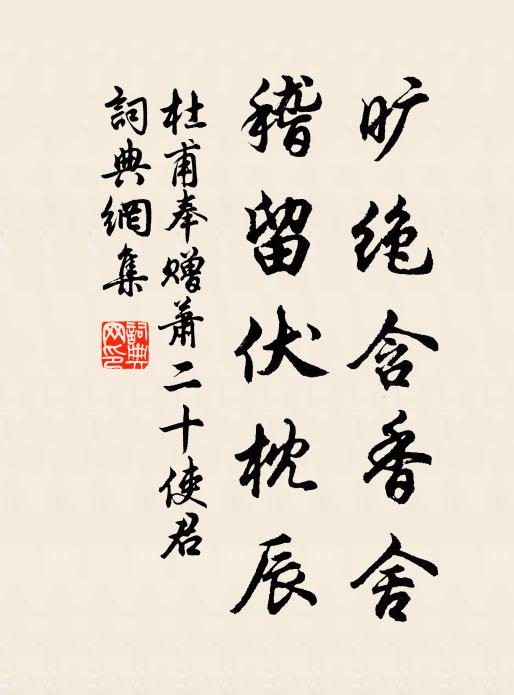 旷绝含香舍
稽留伏枕辰
杜甫奉赠萧二十使君
詞典網集
詞典网印